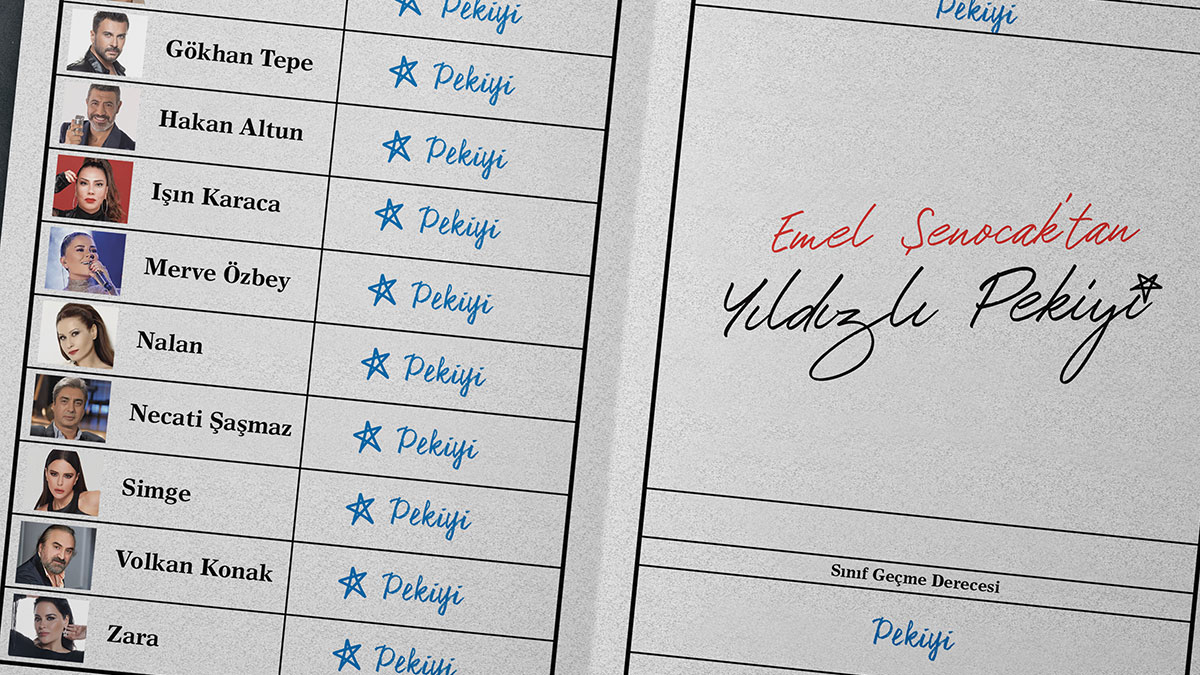 Pekiyi
Gökhan Tepe Pekiyi
Hakan Altun Pekiyi
Işın Karaca Pekiyi
Merve Özbey Pekiyi
Nalan Pekiyi
Necati Şaşmaz Pekiyi
Simge Pekiyi
Volkan Konak Pekiyi
Zara Pekiyi
Pekiyi
Emel Şenocak'tan
Yıldızlı Pekiyi
Sınıf Geçme Derecesi
Pekiyi